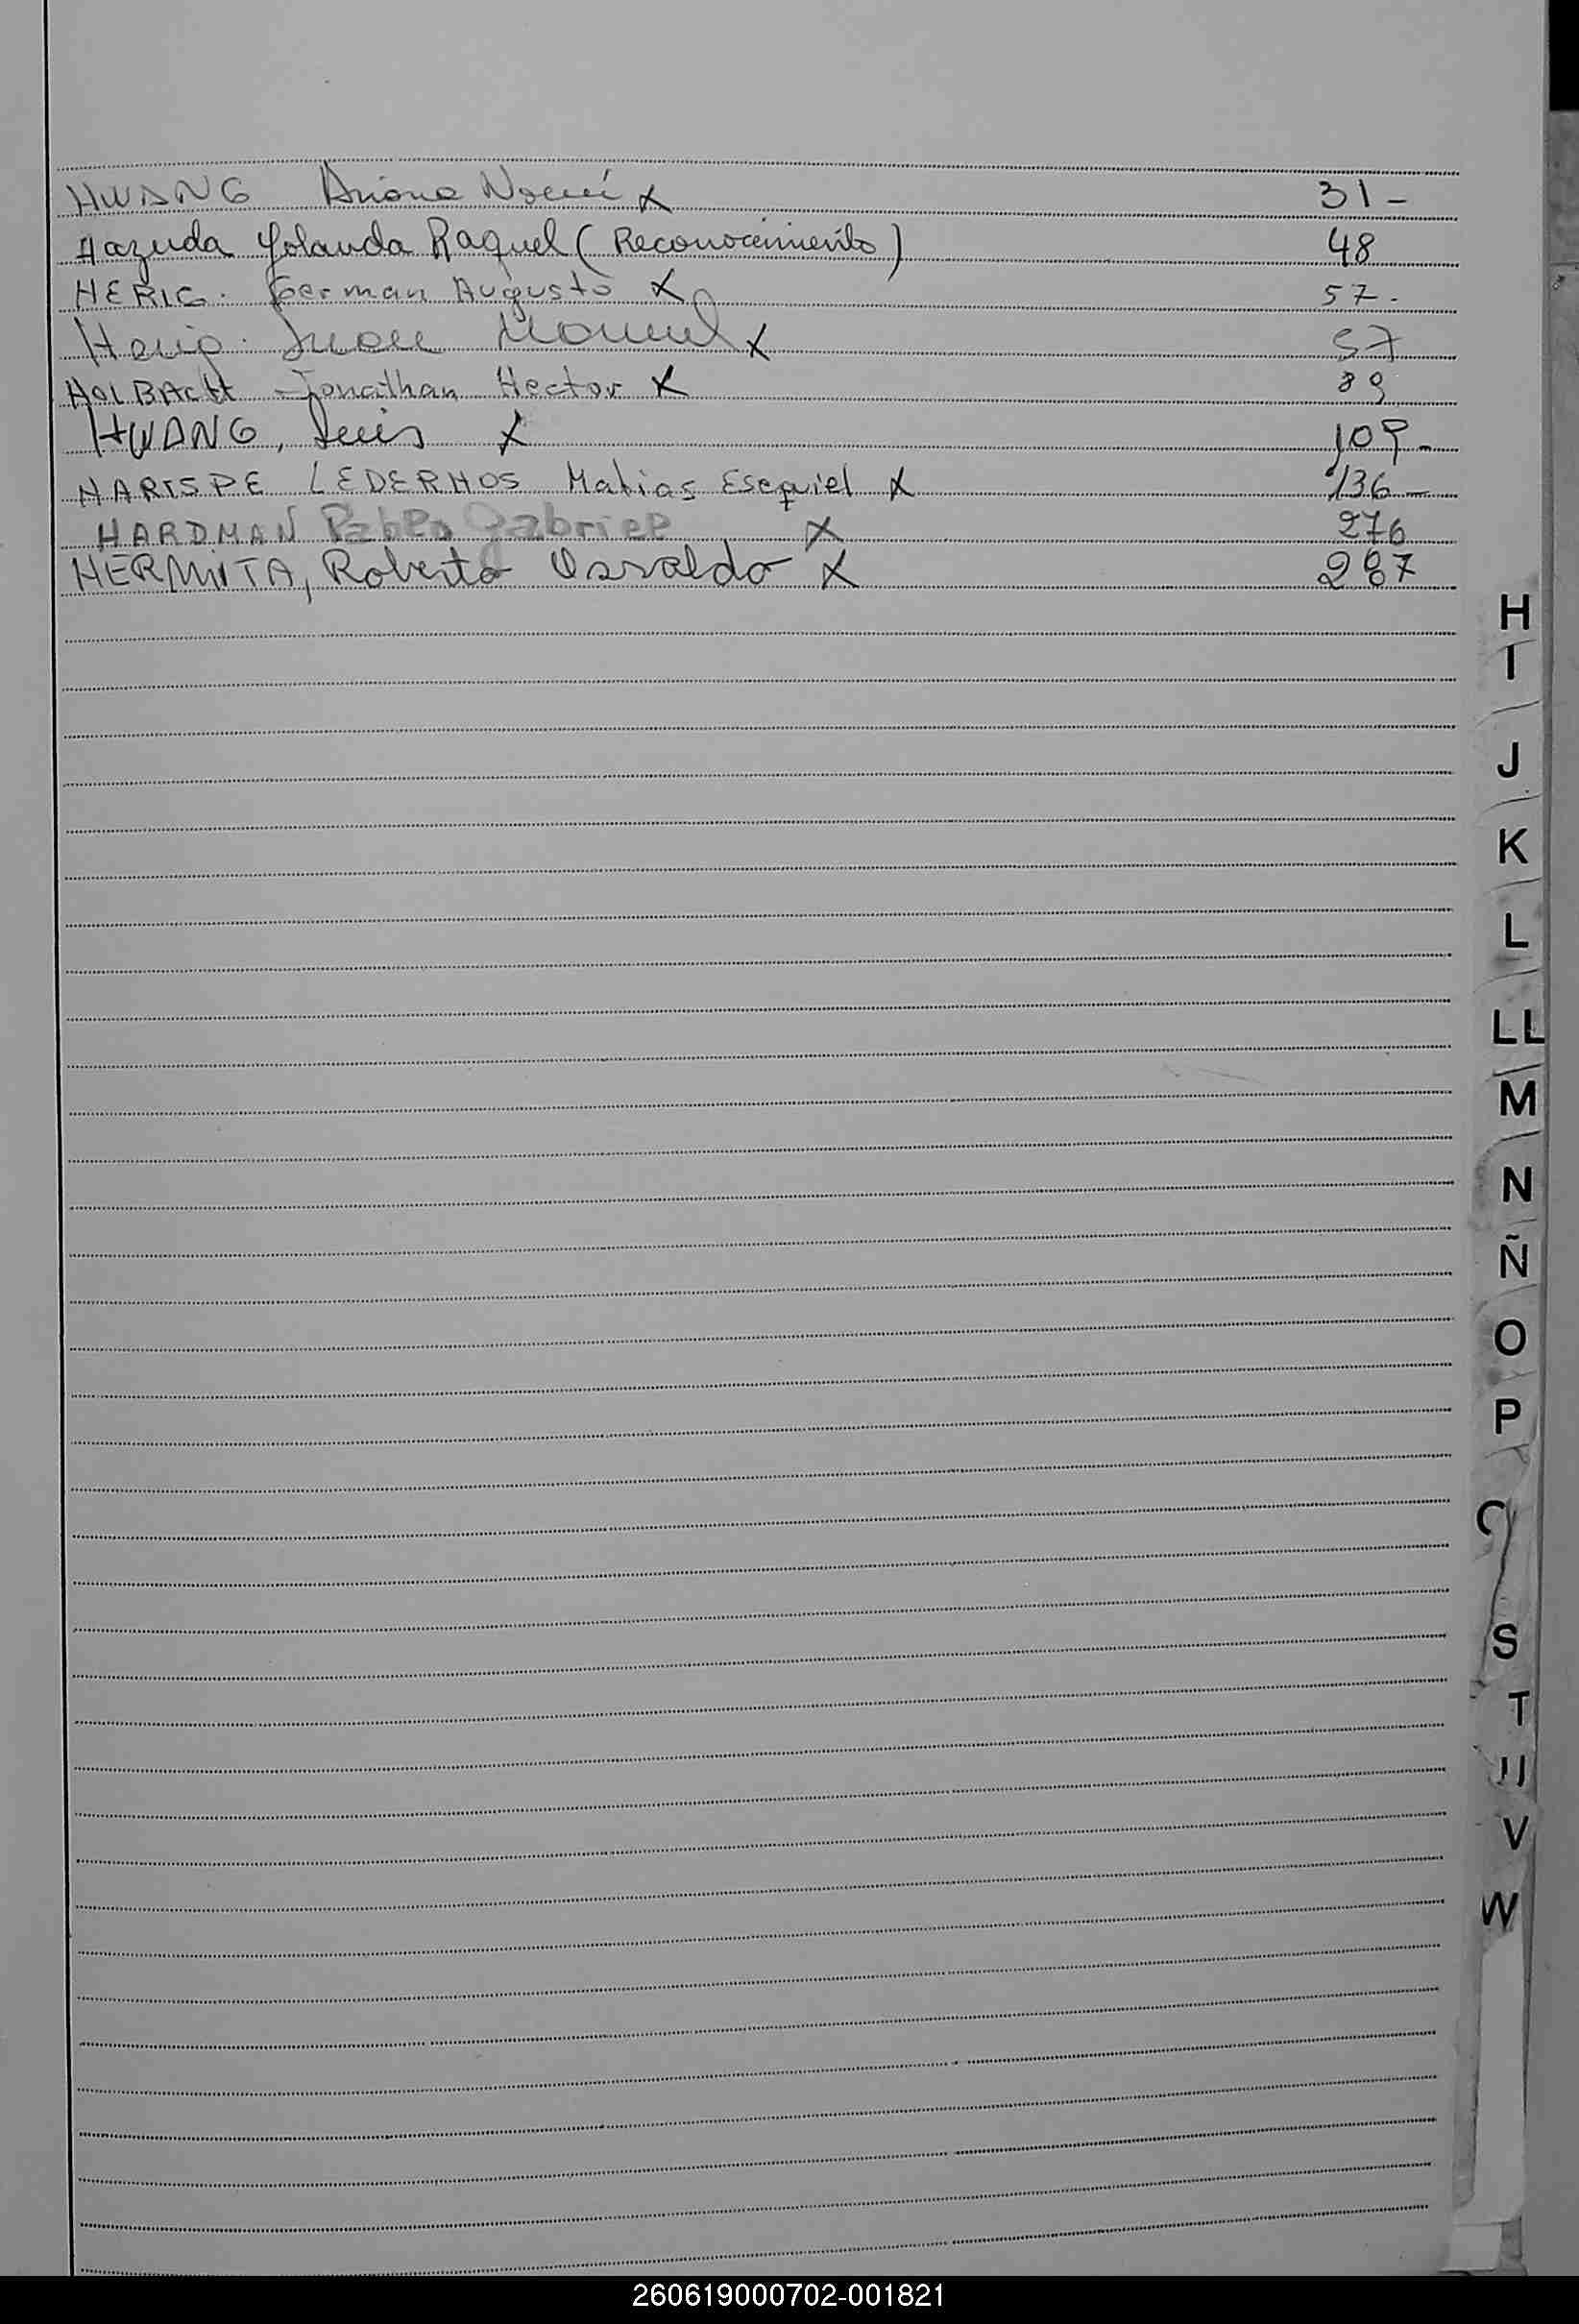 HWANG Ariana Noemí X 31-
Hazuda Yolanda Raquel (Reconocimiento) 48
HERIG. German Augusto X 57.
Herig. Juan Manuel X 57
HOLBACH Jonathan Hector X 89
HWANG, Luis X 109-
HARISPE LEDERHOS Matias Esequiel X 136-
HARDMAN Pablo Gabriel X 276
HERMIVTA, Roberto Osvaldo X 287
H
I
J
K
L
LL
M
N
Ñ
O
P
Q
S
T
U
V
W
260619000702-001821